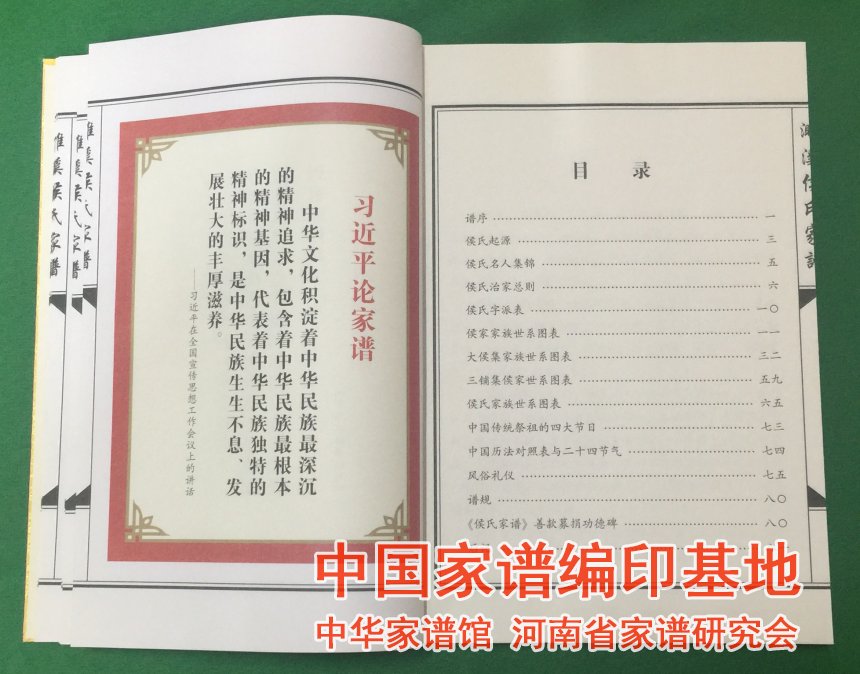 习近平论家谱
中华文化积淀着中华民族最深沉
的精神追求，包含着中华民族最根本
的精神基因，代表着中华民族独特的
精神标识，是中华民族生生不息、发
展壮大的丰厚滋养。
——习近平在全国宣传思想工作会议上的讲话
濉溪侯氏家谱
目 录
谱序 一
侯氏起源 三
侯氏名人集锦 五
侯氏治家总则 六
侯氏字派表 一〇
侯家家族世系图表 一一
大侯集家族世系图表 三二
三铺集侯家世系图表 五九
侯氏家族世系图表 六五
中国传统祭祖的四大节日 七三
中国历法对照表与二十四节气 七四
风俗礼仪 七五
谱规 八〇
《侯氏家谱》善款募捐功德碑 八〇
中国家谱编印基地
中华家谱馆 河南省家谱研究会